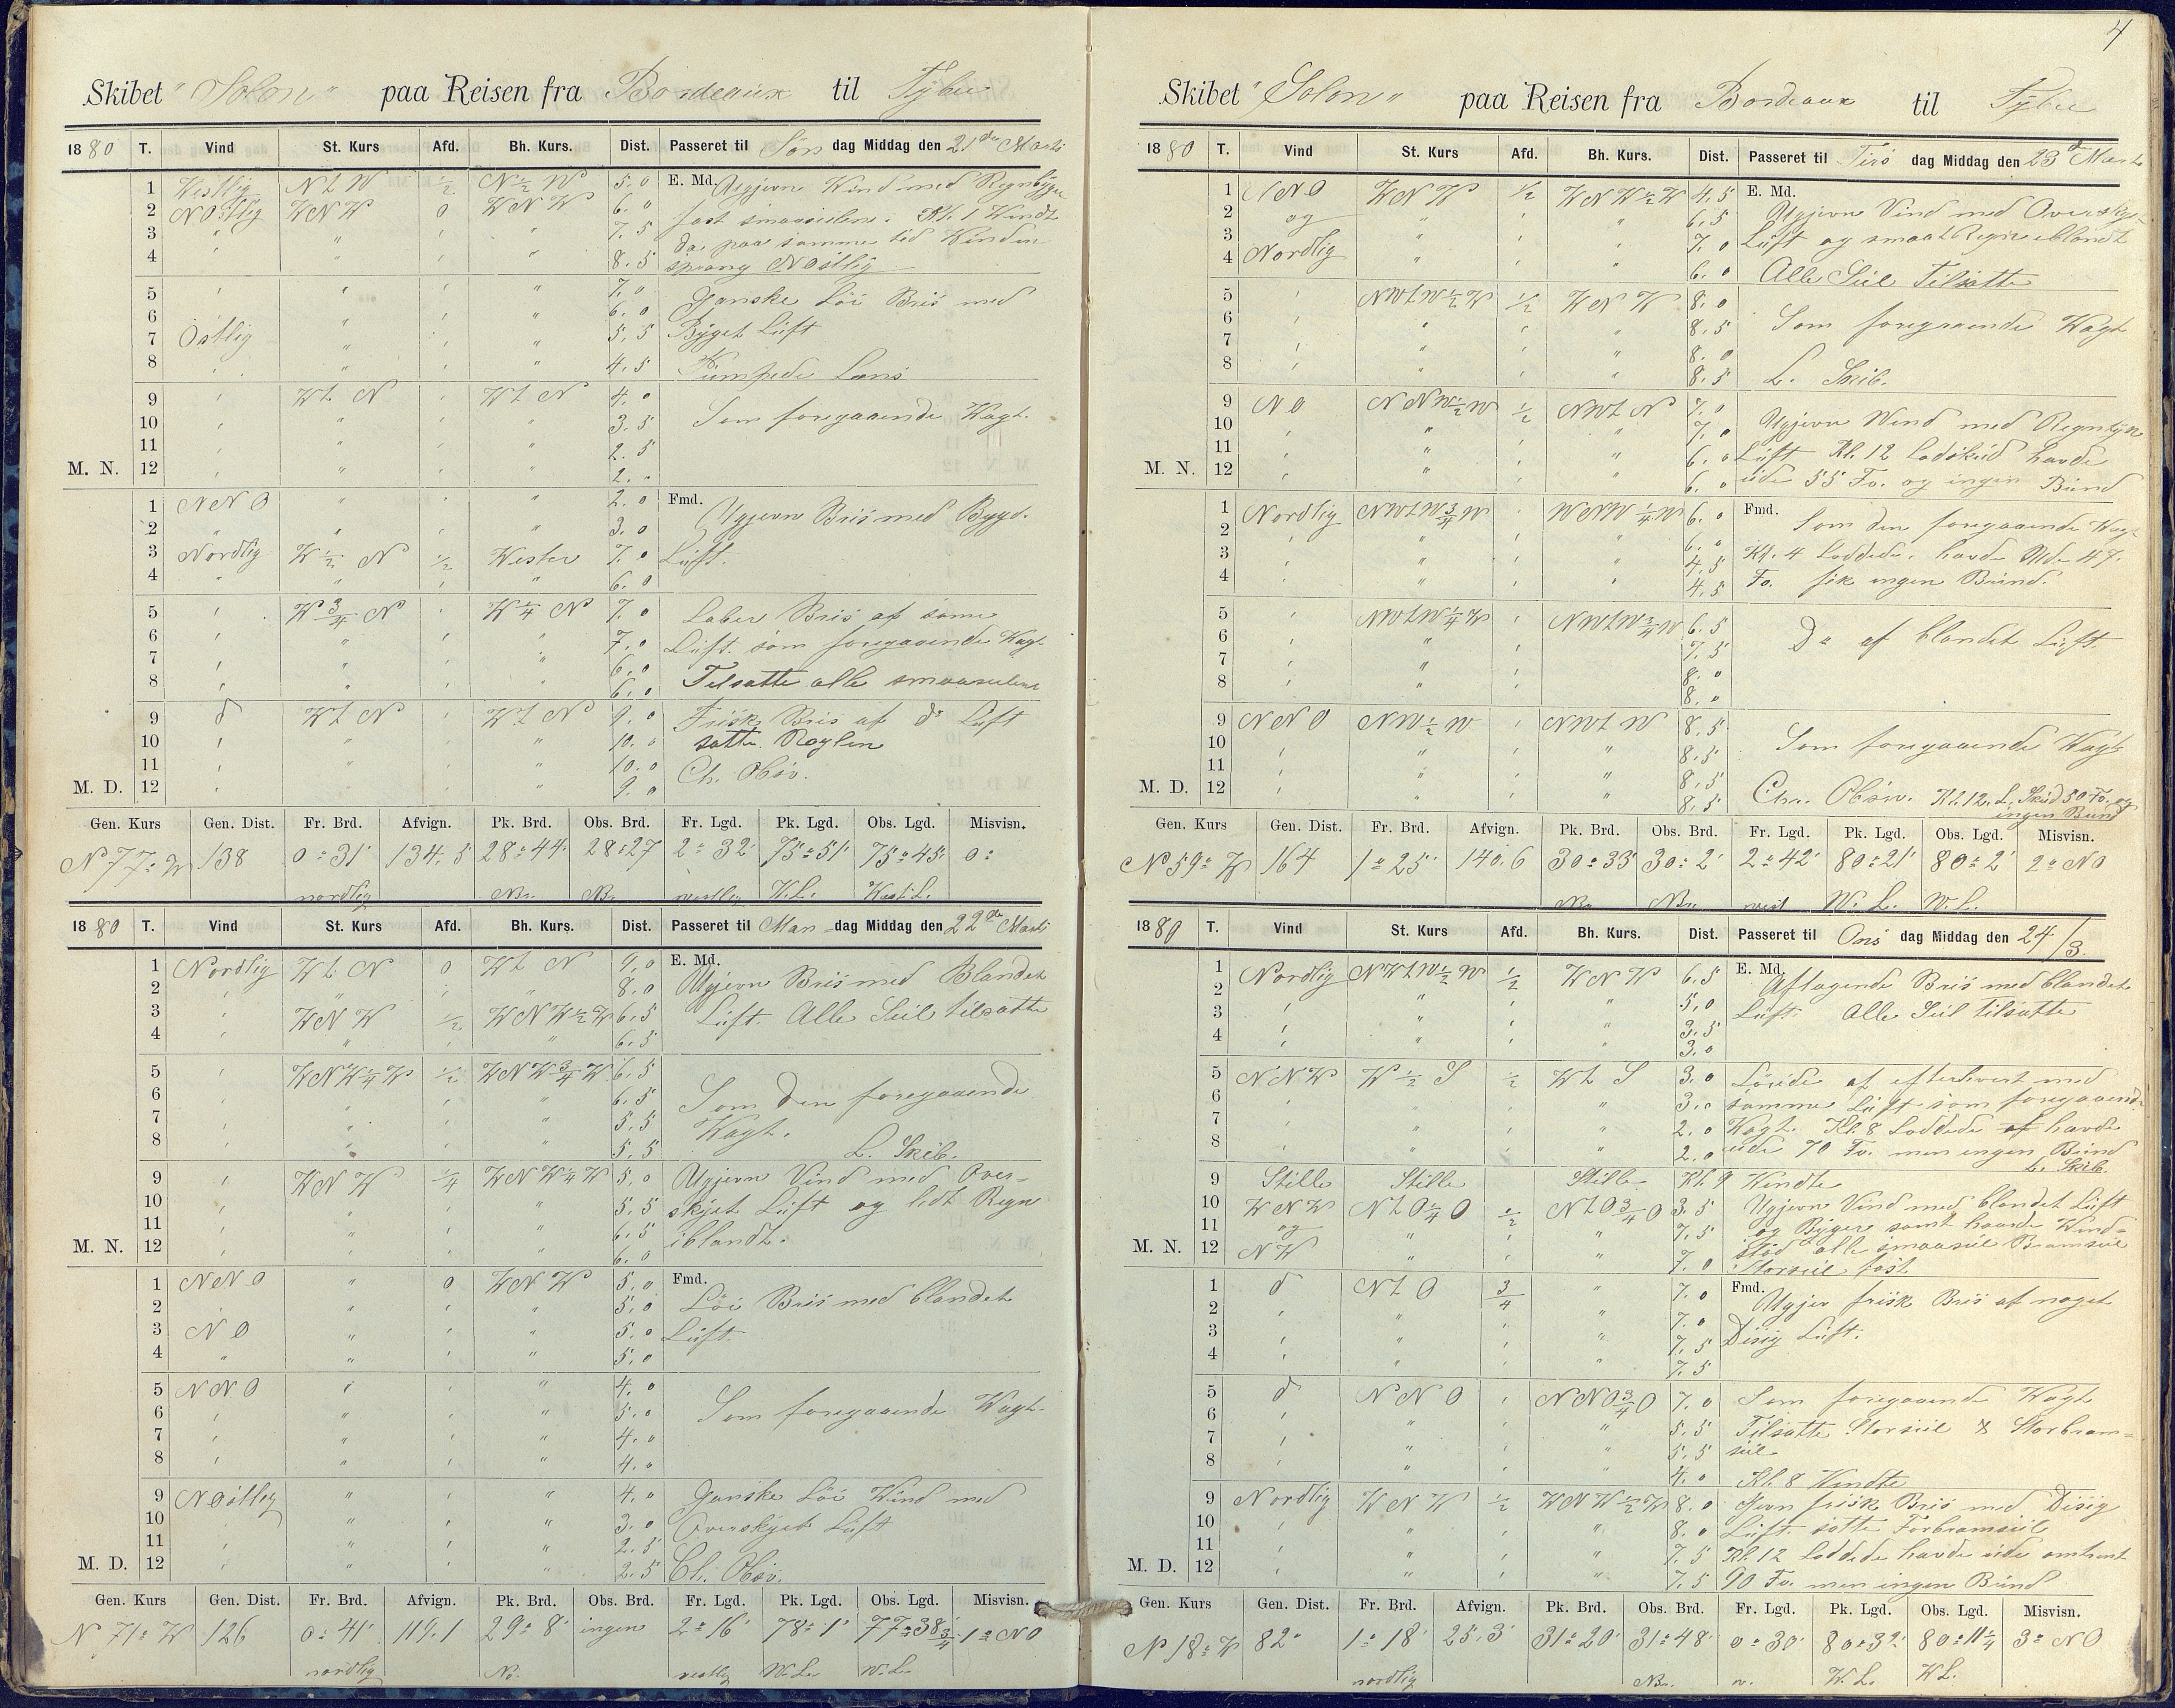 Skibet "Solon" paa Reisen fra Bordeaux til Tybee
1880 T. Vind St. Kurs Afd. Bh. Kurs. Dist. Passeret til Søn dag Middag den 21de Marts
1 Vestlig N t W ½ N ½ W 5.0 E. Md. Ugjevn Wind med Regnbyger
2 NOstlig WNW 0 WNW 6.0 fast smaaseilene. Kl. 1 Wendt
3 " " " " 7.5 da paa samme tid Winden
4 " " " " 8.5 sprang NOstlig
5 " " " " 7.0 Ganske Löi Bris med
6 " " " " 6.0 Byget Luft
7 Ostlig " " " 5.5
8 " " " " 4.5 Pumpede Læns
9 " W t N " W t N 4.0
10 " " " " 3.5 Som foregaaende Vagt.
11 " " " " 2.5
M. N. 12 " " " " 2.
1 NNO " " " 2.0 Fmd. Ugjevn Bris med Byget
2 " " " " 3.0
3 Nordlig W ½ N ½ Wester 7.0 Luft.
4 " " " " 6.0
5 " W ¾ N " W ¼ N 7.0 Laber Bris af samme
6 " " " " 7.0 Luft som foregaaende Vagt
7 " " " " 6.0
8 " " " " 6.0 Tilsatte alle smaaseilene
9 d W t N " W t N 9.0 Frisk Bris af do Luft
10 " " " " 10.0 satte Røylen
11 " " " " 10.0 Ch. Obsv.
M. D. 12 " " " " 9.0
Gen. Kurs Gen. Dist. Fr. Brd. Afvign. Pk. Brd. Obs. Brd. Fr. Lgd. Pk. Lgd. Obs. Lgd. Misvisn.
N 77° W 138 0° 31' 134.5 28° 44' 28° 27 2° 32' 75° 51' 75° 45' 0°
nordlig Nr. Nr. vestlig W. L. West. L.
1880 T. Vind St. Kurs Afd. Bh. Kurs. Dist. Passeret til Man dag Middag den 22de Marts
1 Nordlig W t N 0 W t N 9.0 E. Md. Ugjevn Bris med Blandet
2 " " " " 8.0
3 " WNW ½ WNW ½ W 6.5 Luft. Alle Seil tilsatte
4 " " " " 6.5
5 " WNW ¼ W ½ WNW ¾ W 6.5
6 " " " " 6.5 Som den foregaaende
7 " " " " 5.5 Vagt.
8 " " " " 5.5 L. Skib.
9 " WNW ¼ WNW ¼ W 5.0 Ugjevn Vind med Over-
10 " " " " 5.5 skyet Luft og lidt Regn
11 " " " " 6.5 iblandt.
M. N. 12 " " " " 6.0
1 NNO " 0 WNW 5.0 Fmd.
2 " " " " 5.0 Löi Bris med blandet
3 NO " " " 5.0 Luft.
4 " " " " 5.0
5 NNO " " " 4.0
6 " " " " 5.0 Som foregaaende Vagt
7 " " " " 4.0
8 " " " " 4.0
9 NOstlig " " " 4.0 Ganske Löi Wind med
10 " " " " 3.0 Overskyet Luft
11 " " " " 2.5
M. D. 12 " " " " 2.5 Ch. Obsv.
Gen. Kurs Gen. Dist. Fr. Brd. Afvign. Pk. Brd. Obs. Brd. Fr. Lgd. Pk. Lgd. Obs. Lgd. Misvisn.
N 71° W 126 0° 41' 119.1 29° 8' ingen 2° 16' 78° 1' 77° 38¾' 1° NO
nordlig Nr. vestlig W. L. W. L.
4
Skibet "Solon" paa Reisen fra Bordeaux til Tybee
1880 T. Vind St. Kurs Afd. Bh. Kurs. Dist. Passeret til Tirs dag Middag den 23de Marts
1 NNO WNW ½ WNW ½ W 4.5 E. Md.
2 og " " " 6.5 Ugjevn Vind med Overskyet
3 " " " 7.0 Luft og smaat Regn iblandt
4 Nordlig " " " 6.0 Alle Seil Tilsatte
5 " NW t W ½ W ½ WNW 8.0
6 " " " " 8.5 Som foregaaende Vagt
7 " " " " 8.0
8 " " " " 8.5 L. Skib.
9 NO NNW ½ W ½ NW t N 7.0
10 " " " " 7.0 Ugjevn Wind med Regntyk
11 " " " " 6.0 Luft Kl. 12 Lodskud havde
M. N. 12 " " " " 6.0 ude 55 Fv. og ingen Bund
1 Nordlig NW t W ¾ W " WNW ¼ W 6.0 Fmd.
2 " " " " 6.0 Som den foregaaende Vagt
3 " " " " 4.5 Kl. 4 Loddede, havde Ude 47.
4 " " " " 4.5 Fv. fik ingen Bund.
5 " NW t W ¼ W " NW t W ¾ W 6.5
6 " " " " 7.5 Do af blandet Luft.
7 " " " " 8.0
8 " " " " 8.0
9 NNO NW ½ W " NW t W 8.5
10 " " " " 8.5 Som foregaaende Vagt
11 " " " " 8.5
M. D. 12 " " " " 8.5 Chr. Obsv. Kl. 12. L. Skud 50 Fv. og
ingen Bund
Gen. Kurs Gen. Dist. Fr. Brd. Afvign. Pk. Brd. Obs. Brd. Fr. Lgd. Pk. Lgd. Obs. Lgd. Misvisn.
N 59° W 164 1° 25' 140.6 30° 33' 30° 2' 2° 42' 80° 21' 80° 2' 2° NO
Nr. Nr. vest W. L. W. L.
1880 T. Vind St. Kurs Afd. Bh. Kurs. Dist. Passeret til Ons dag Middag den 24/3.
1 Nordlig NW t W ½ W ½ WNW 6.5 E. Md.
2 " " " " 5.0 Aftagende Bris med blandet
3 " " " " 3.5 Luft Alle Seil tilsatte
4 " " " " 3.0
5 NNW W ½ S ½ W t S 3.0 Löiede af efterhvert med
6 " " " " 3.0 samme Luft som foregaaende
7 " " " " 2.0 Vagt. Kl. 8 Loddede af havde
8 " " " " 2.0 ude 70 Fv. men ingen Bund
L. Skib.
9 Stille Stille Stille Kl. 9 Wendte
10 WNW N t O ¼ O ½ N t O ¾ O 3.5 Ugjevn Vind med blandet Luft
11 og " " " 7.5 og Byger samt haarde Wind-
M. N. 12 NW " " " 7.0 stød alle smaaseil Bramseil
Storseil fast
1 d N t O ¾ " 7.0 Fmd.
2 " " " " 7.0 Ugjev frisk Bris af noget
3 " " " " 7.5 Disig Luft.
4 " " " " 7.5
5 d NNO " NNO ¾ O 7.0 Som foregaaende Vagt
6 " " " " 5.5 Tilsatte Storseil & Storbram-
7 " " " " 5.5 seil
8 " " " " 4.0 Kl. 8 Wendte
9 Nordlig WNW ½ WNW ½ W 8.0 Jevn frisk Bris med Disig
10 " " " " 8.0 Luft. satte Forbramseil
11 " " " " 7.5 Kl. 12 Loddede havde ude omtrent
M. D. 12 " " " " 7.5 90 Fv. men ingen Bund
Gen. Kurs Gen. Dist. Fr. Brd. Afvign. Pk. Brd. Obs. Brd. Fr. Lgd. Pk. Lgd. Obs. Lgd. Misvisn.
N 18° W 82" 1° 18' 25.3' 31° 20' 31° 48' 0° 30' 80° 32' 80° 11¼ 3° NO
nordlig Nr. w. W. L. W L.